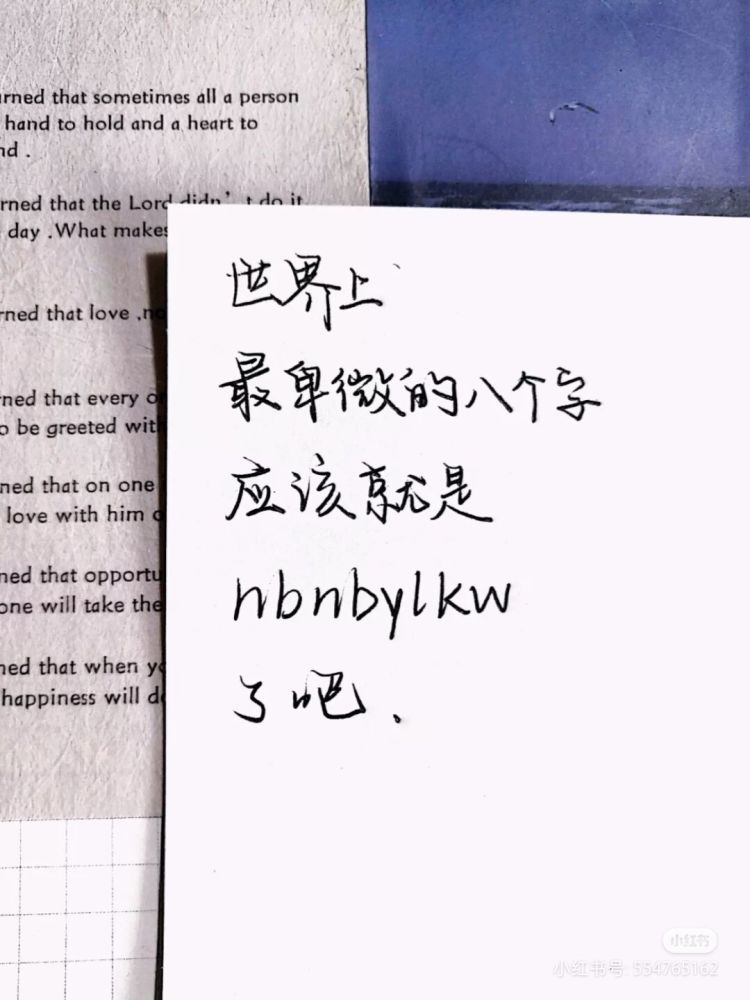 rned that sometimes all a person
hand to hold and a heart to
nd .
rned that the Lord didn't do it
day .What makes
rned that love ,no
ned that every o
o be greeted with
ned that on one
love with him
ned that opportu
one will take the
ned that when yo
happiness will d
世界上
最卑微的八个字
应该就是
nbnbylkw
了吧.
小红书
小红书号: 554765162